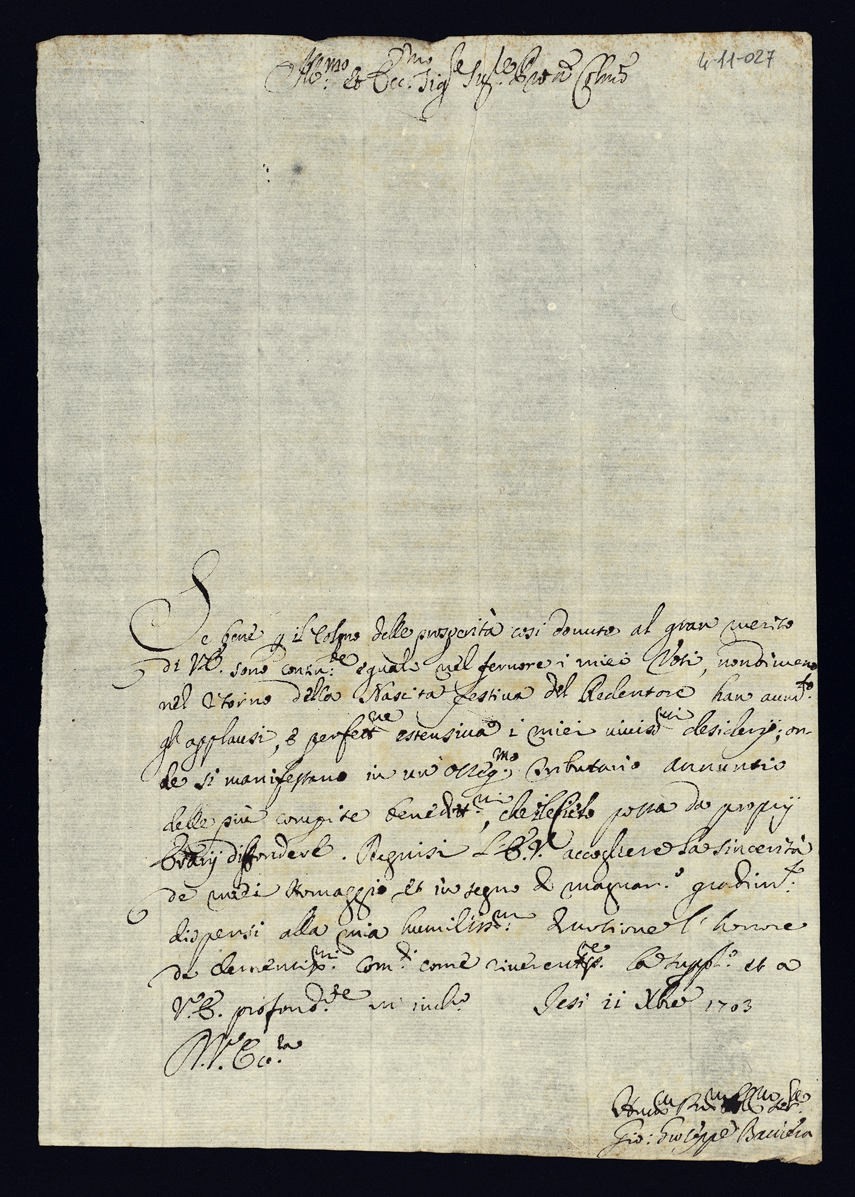 4-11-027
Ill.mo et Ecc.mo Sig.e Sig.e Pron Colmo
Se bene p il Colmo delle prosperità così dovute al gran merito
di V.E. sono contin.te eguali nel fervore i miei Voti, nondimeno
nel ritorno della Nascita festiva del Redentore han aum.to
gl'applausi, e perfett.ne estensiva i miei viviss.mi desiderij; on-
de si manifestano in un osseq.mo tributario annuntio
delle più compite beneditt.ni, che il Cielo possa da proprij
Erarij diffondere. Degnisi l'E.V. accogliere la sincerità
de miei Homaggio et in segno di magnan.o gradim.to
dispensi alla mia humiliss.ma divotione l'honore
de clementiss.mi com.di come riverentem.te la suppl.o et a
V.E. profond.te m'inch.o Jesi 11 Xbre 1703
D. V. Ecc.za
Hum.mo Dev.mo Obl.mo Ser.e
Gio: Giuseppe